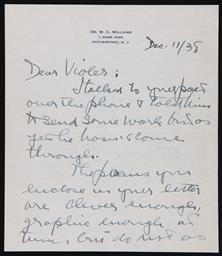 DR. W. C. WILLIAMS
RUTHERFORD, N. J.
Dec. 11/38
Dear Violet;
I talked to your poet
over the phone & told him
to send some work but as
yet he hasn't come
through.
The poems you
enclose in your letter
are clever enough,
graphic enough at
times, but do not as